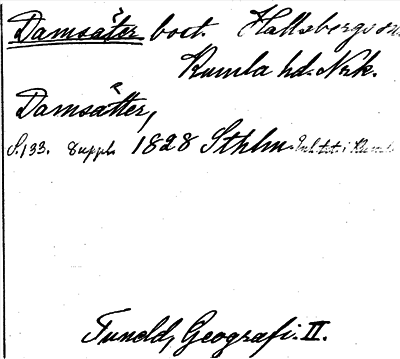 Damsäter bost. Hallsbergs sn
Kumla hd. Nrk.
Damsätter,
S. 133. Suppl. 1828 Sthlm.
Tuneld, Geografi. II.